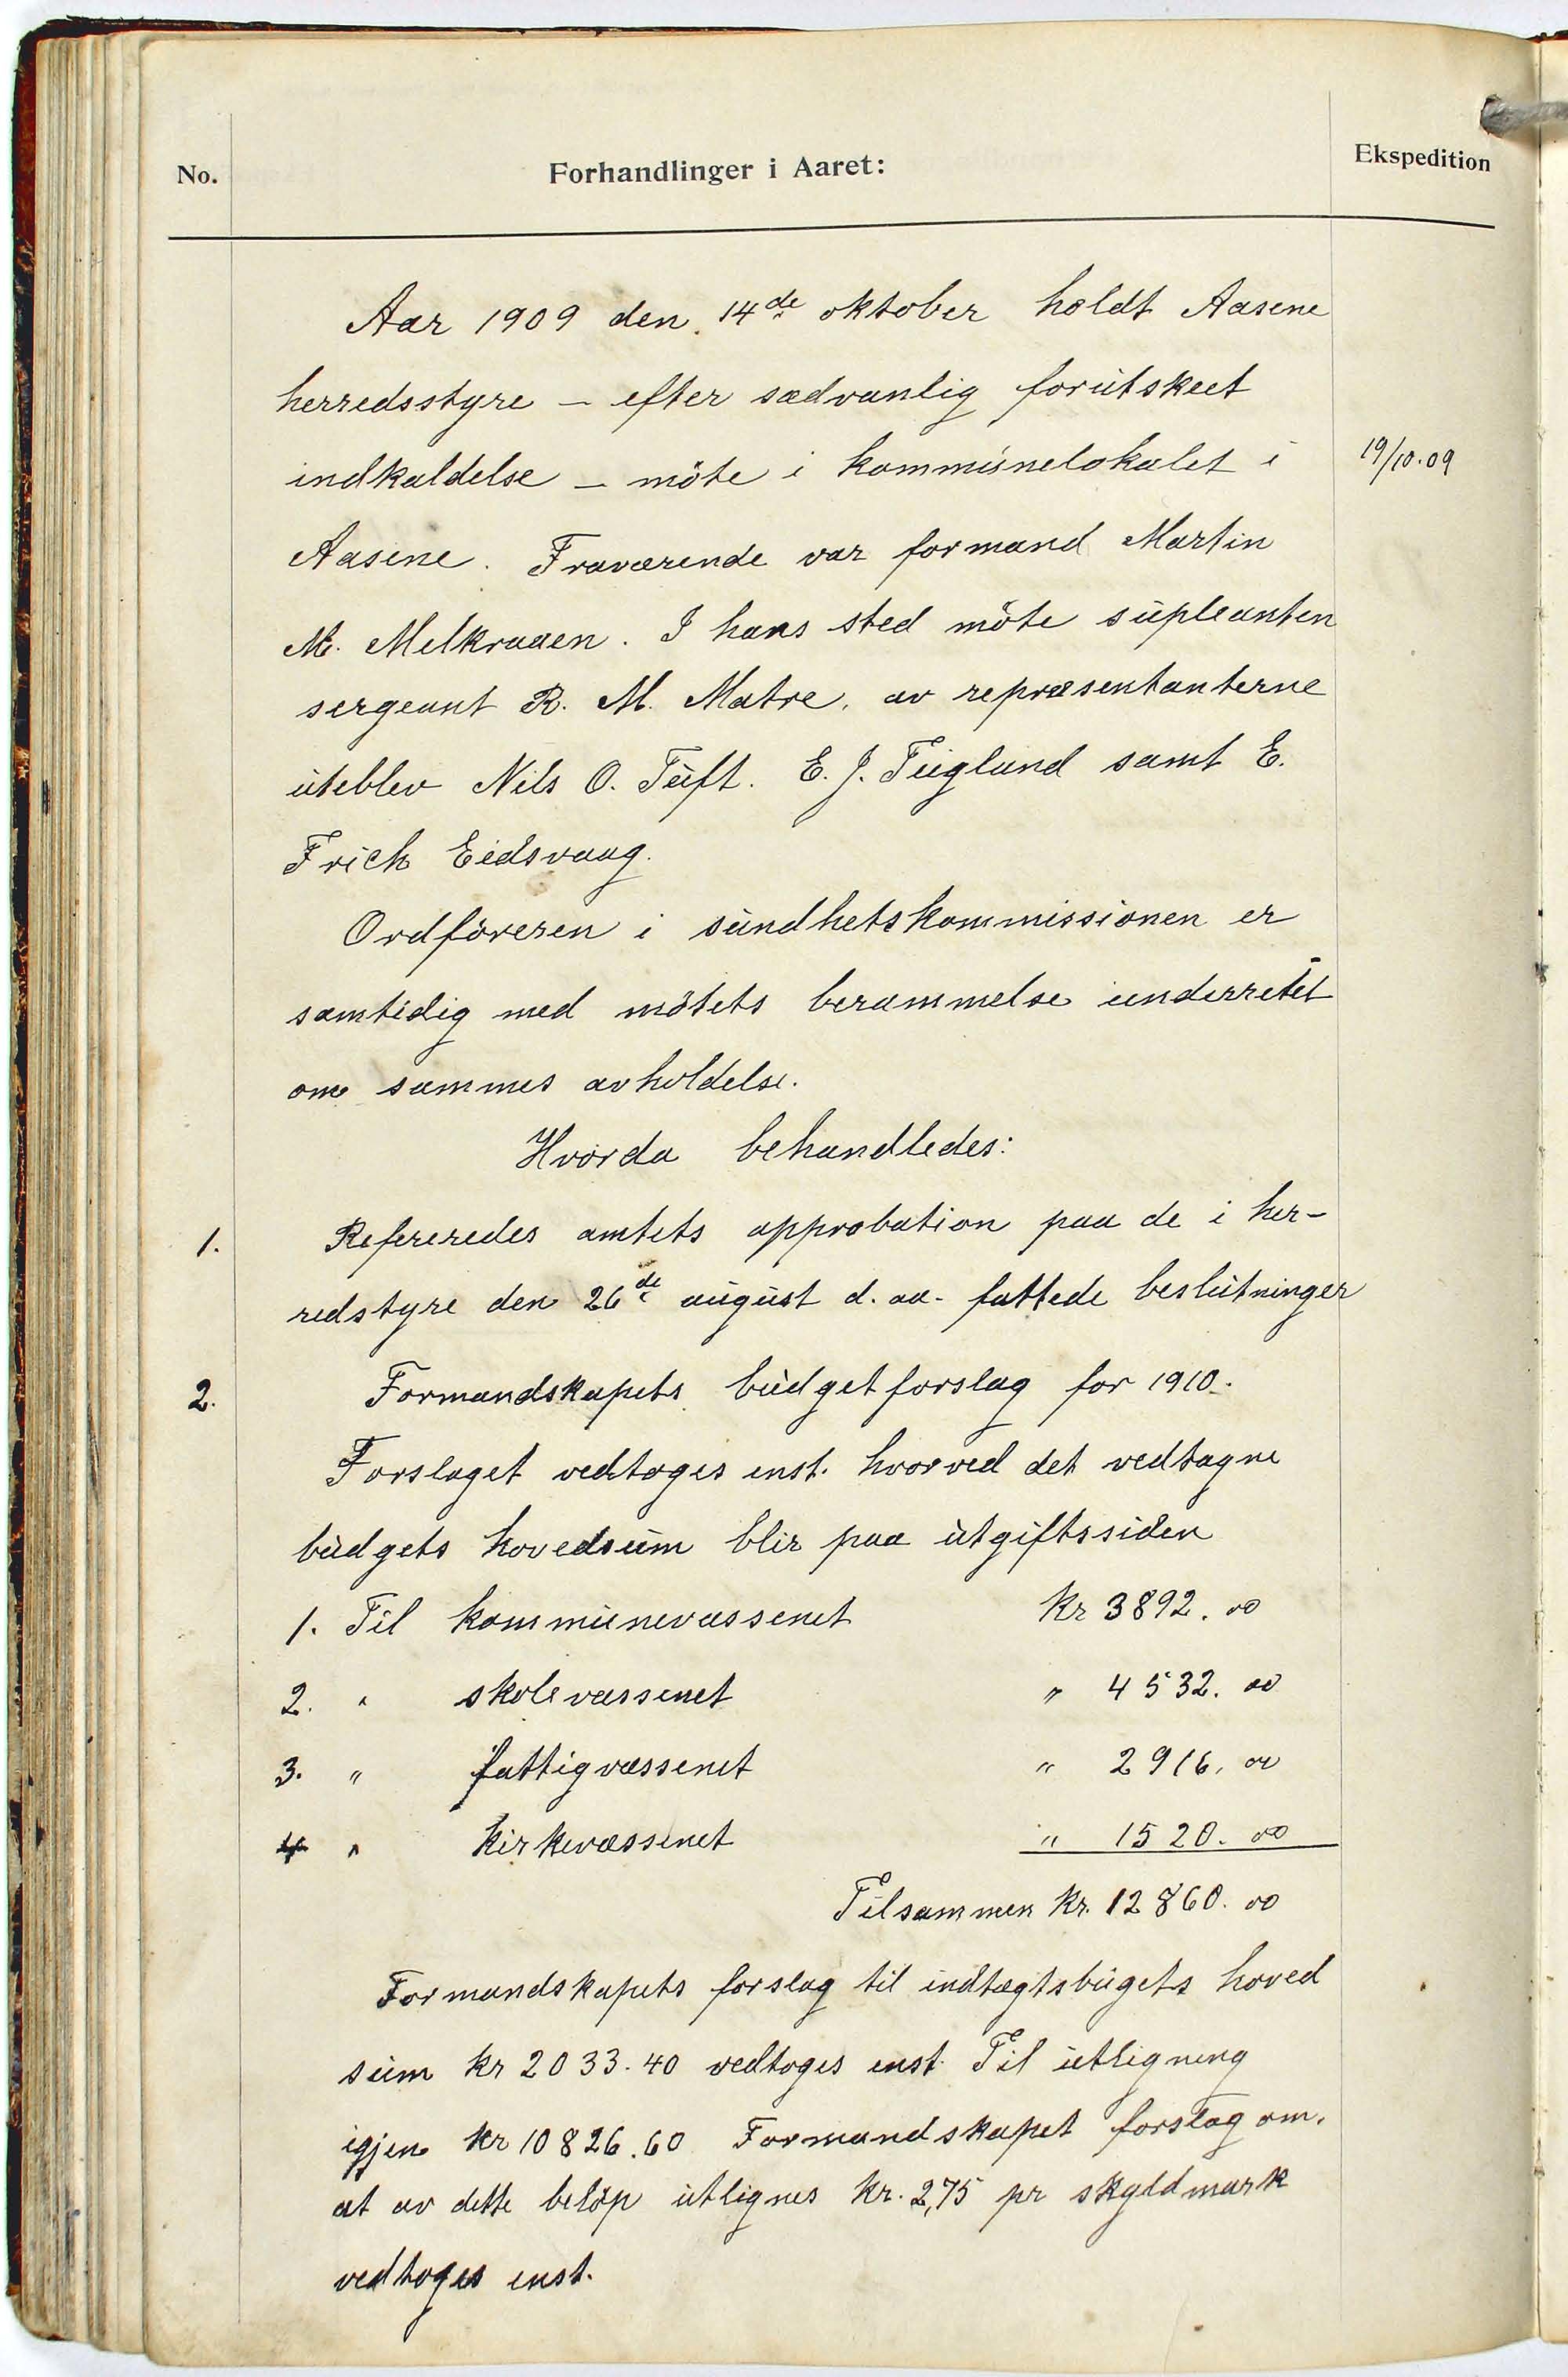 No.
Forhandlinger i Aaret:
Ekspedition
Aar 1909 den 14de oktober holdt Aasene
herredsstyre – efter sædvanlig forutskeet
indkaldelse – möte i kommunelokalet i
19/10.09
Aasene. Fraværende var formand Martin
M. Melkraaen. I hans sted möte supleanten
sergeant R. M. Matre, av repræsentanterne
uteblev Nils O. Tuft. E. J. Fuglund samt E.
Frich Eidsvaag.
Ordföreren i sundhetskommissionen er
samtidig med mötets berammelse underretet
om sammes avholdelse.
Hvorda behandledes:
1. Refereredes amtets approbation paa de i her-
redstyre den 26de august d. aa. fattede beslutninger
2. Formandskapets budgetforslag for 1910.
Forslaget vedtoges enst. hvorved det vedtagne
budgets hovedsum blir paa utgiftssiden
1. Til kommunevæssenet Kr 3892.00
2. " skolevæssenet " 4532.00
3. " fattigvæssenet " 2916.00
4 " kirkevæssenet " 1520.00
Tilsammen Kr. 12860.00
Formandskapets forslag til indtægtsbugets hoved
sum kr 2033.40 vedtoges enst. Til utligning
igjen kr 10826.60 Formandskapet forslag om.
at av dette belöp utlignes kr. 2,75 pr skyldmark
vedtoges enst.